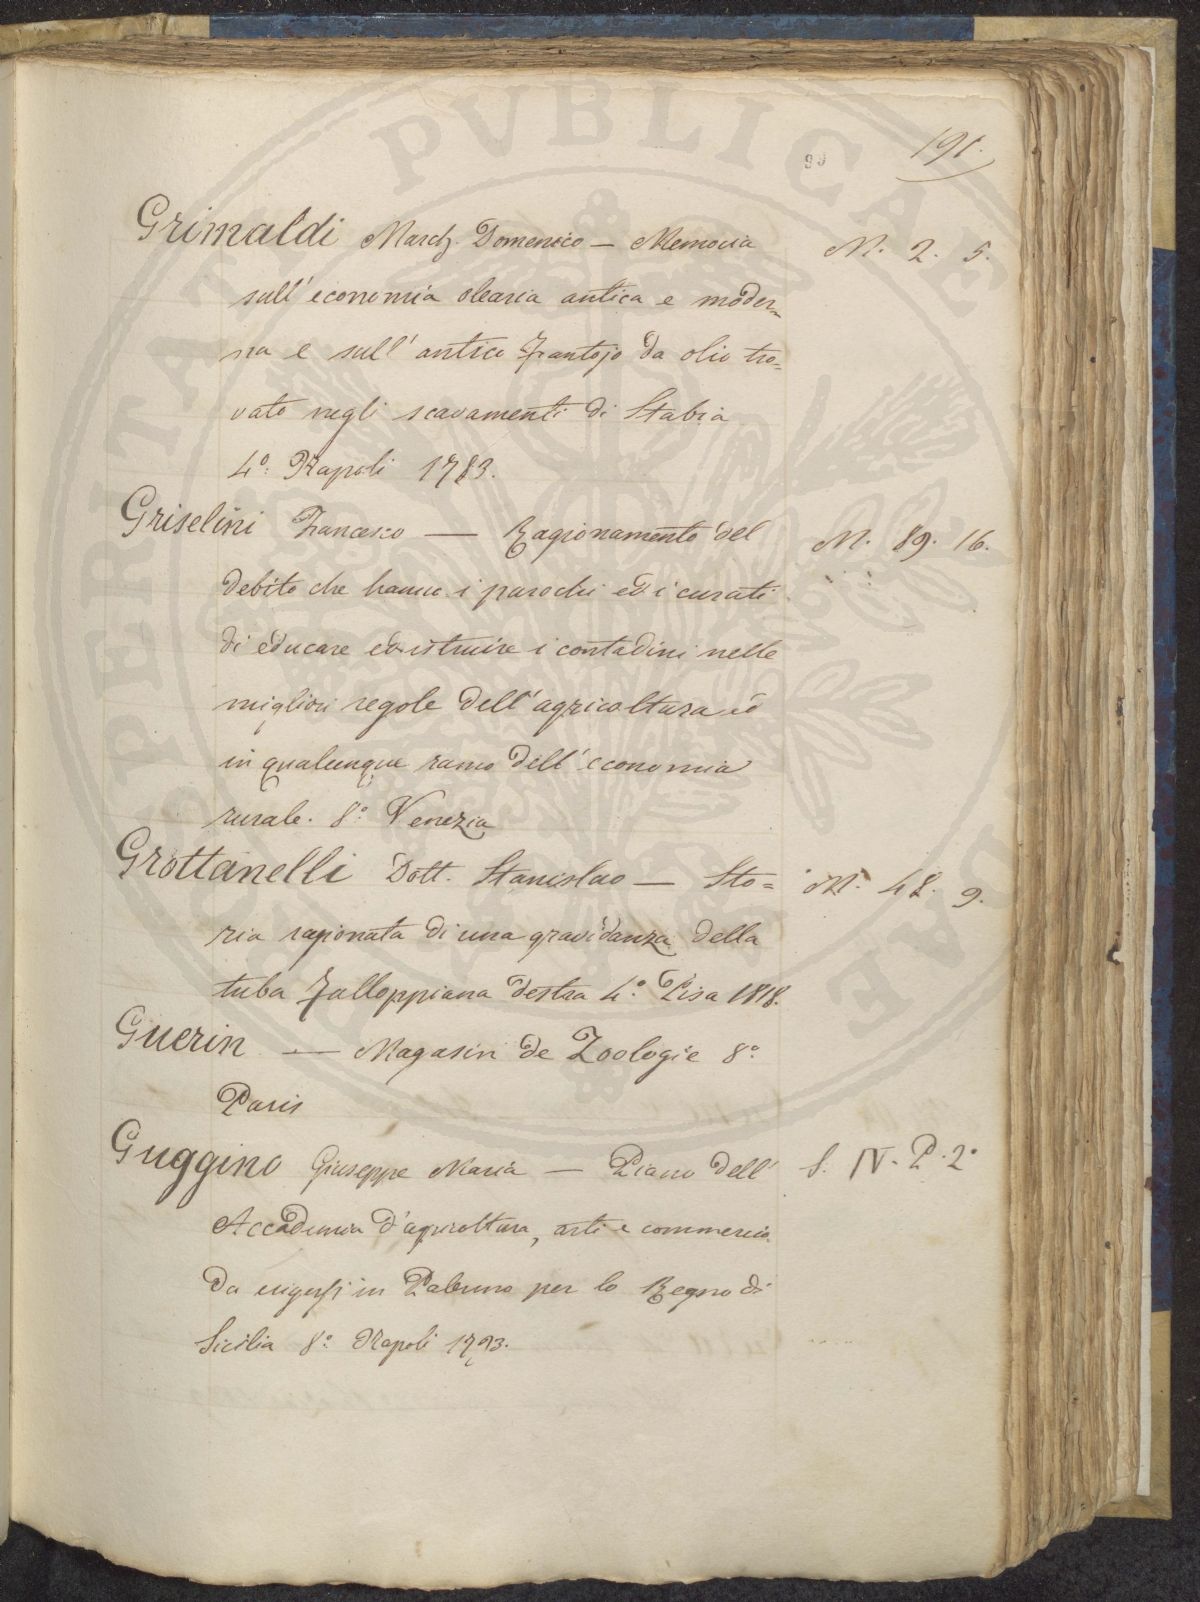 191.
99
Grimaldi March. Domenico — Memoria M. 2. 5.
sull'economia olearia antica e moder=
na e sull'antico frantojo da olio tro=
vato negli scavamenti di Stabia
4.° Napoli 1783.
Griselini Francesco — Ragionamento del M. 89. 16.
debito che hanno i parochi ed i curati
di educare ed istruire i contadini nelle
migliori regole dell'agricoltura ed
in qualunque ramo dell'economia
rurale. 8.° Venezia
Grottanelli Dott. Stanislao — Sto= M. 48. 9.
ria ragionata di una gravidanza della
tuba Falloppiana destra 4.° Pisa 1818.
Guerin — Magasin de Zoologie 8.°
Paris
Guggino Giuseppe Maria — Piano dell' S. IV. P. 2°
Accademia d'agricoltura, arti e commercio
da erigersi in Palermo per lo Regno di
Sicilia 8.° Napoli 1793.